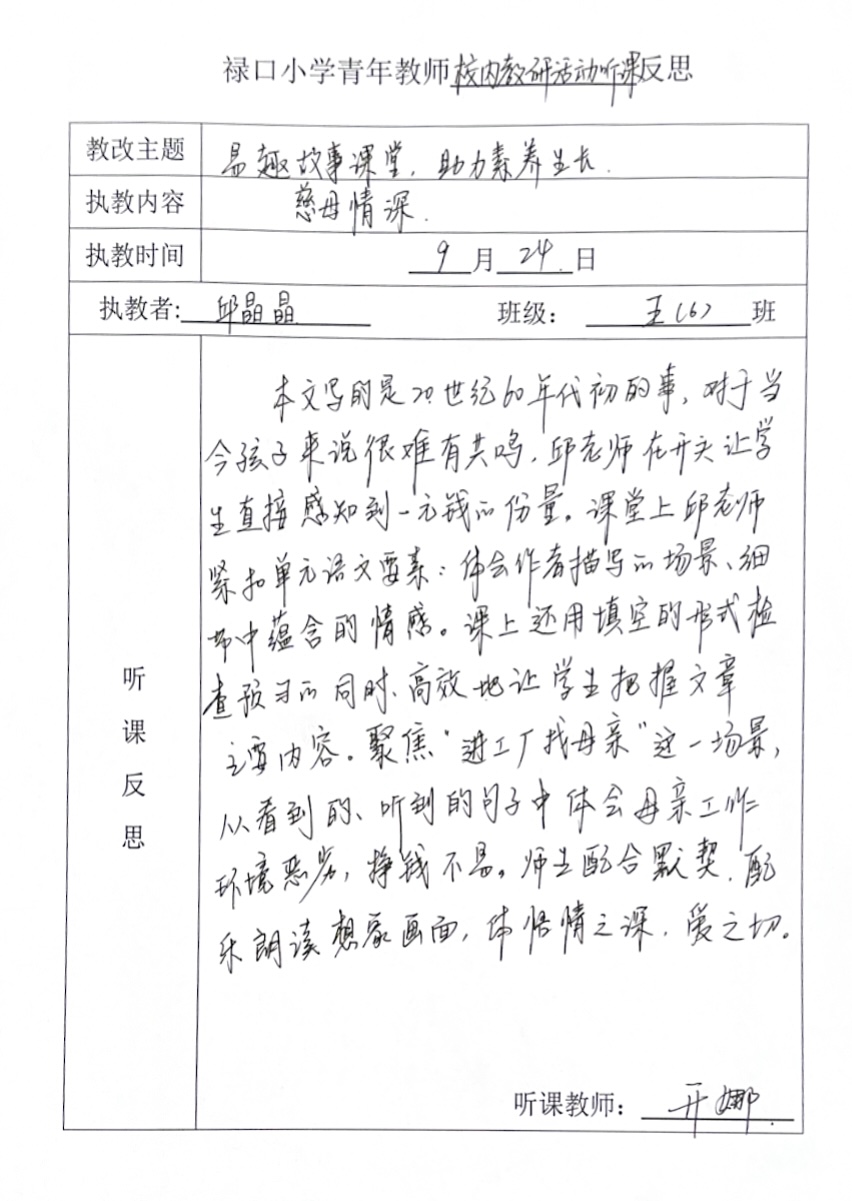 禄口小学青年教师校内教研活动听课反思
教改主题 易趣故事课堂，助力素养生长.
执教内容 慈母情深.
执教时间 9月24.日
执教者: 邱晶晶 班级： 五（6） 班
听课反思
本文写的是20世纪60年代初的事，对于当
今孩子来说很难有共鸣，邱老师在开头让学
生直接感知到一元钱的份量。课堂上邱老师
紧扣单元语文要素：体会作者描写的场景、细
节中蕴含的情感。课上还用填空的形式检
查预习的同时、高效地让学生把握文章
主要内容。聚焦“进工厂找母亲”这一场景，
从看到的、听到的句子中体会母亲工作
环境恶劣，挣钱不易。师生配合默契，配
乐朗读想象画面，体悟情之深，爱之切。
听课教师： 开娜.